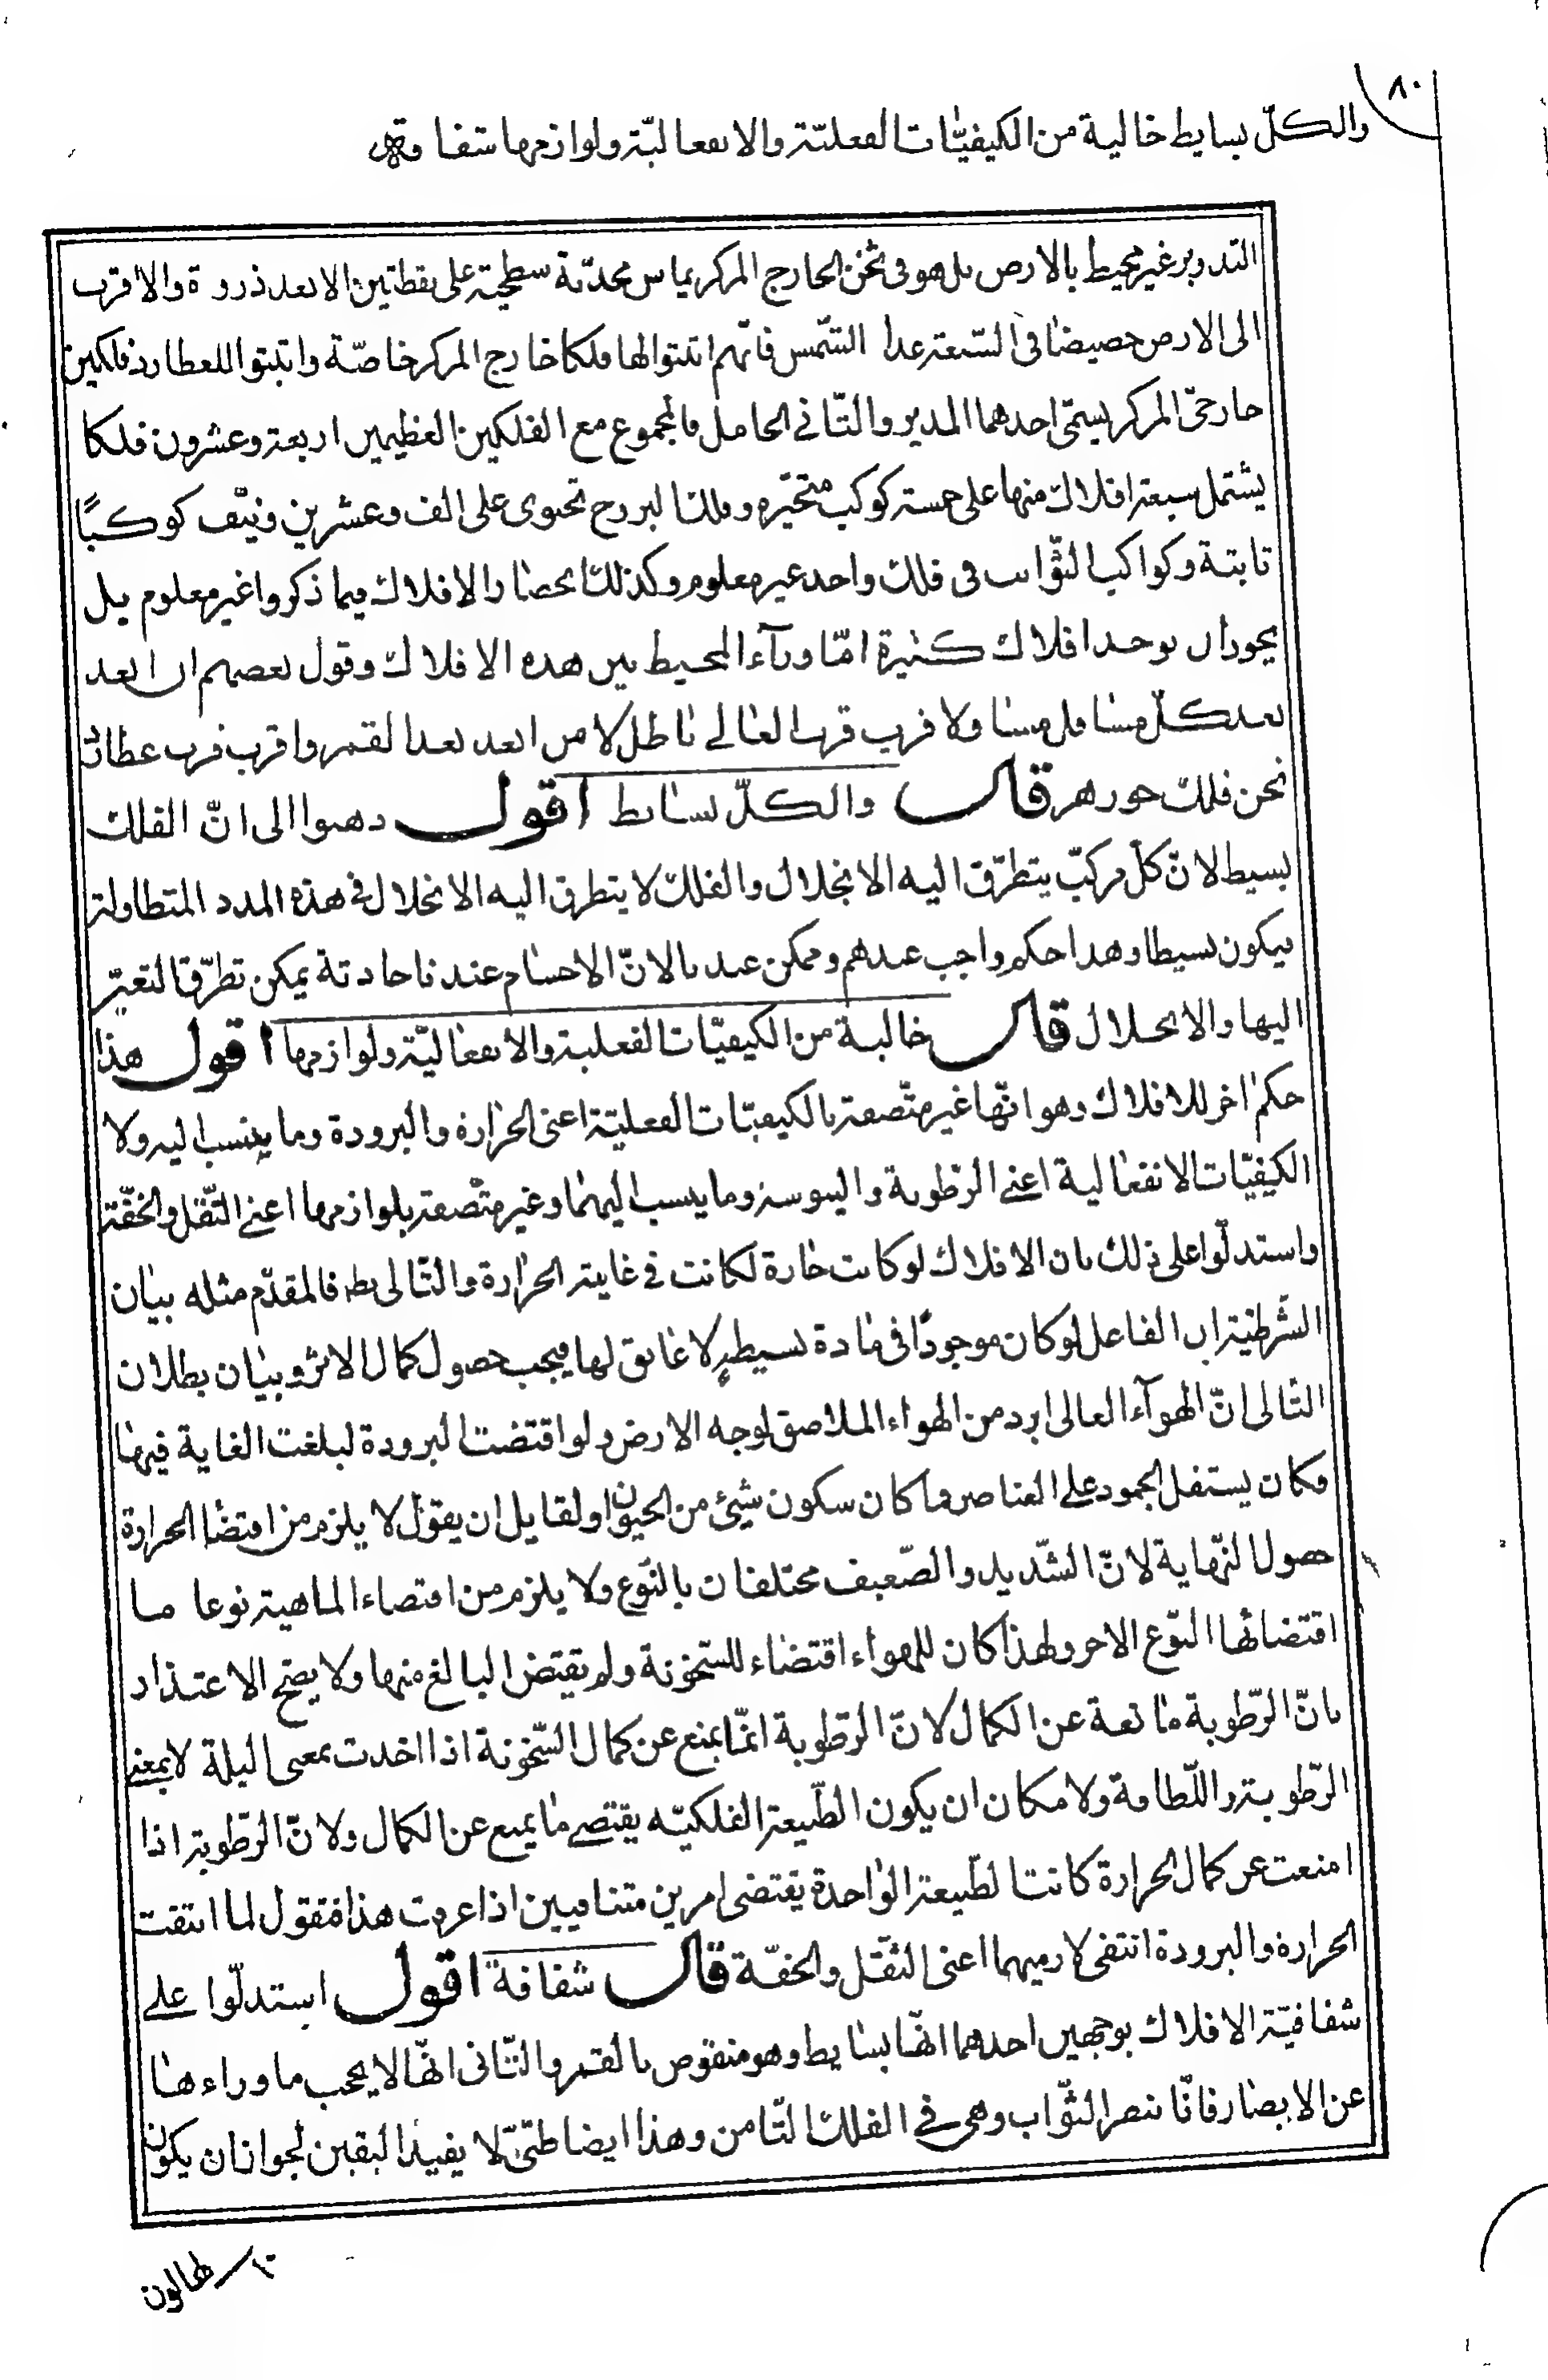 ٨٠
والكلّ بسايط خالية من الكيفيّات الفعليّة والانفعاليّة ولوازمها شفافة
التدوير غير محيط بالارض بل هو فى ثخن الخارج المركز يماس محدّبة سطحيه على نقطتين الابعد ذروة والاقرب
الى الارض حضيضا فى السّبعة عدا الشّمس فانّهم اثبتوا لها فلكا خارج المركز خاصّة واثبتوا للعطارد فلكين
خارجىّ المركز يسمّى احدهما المدير والثّانى الحامل فالمجموع مع الفلكين العظيمين اربعة وعشرون فلكا
يشتمل سبعة افلاك منها على خمسة كوكب متحيّره وفلك البروج تحتوى على الف وعشرين ونيّف كوكبًا
ثابتة وكواكب الثّوابت فى فلك واحد غير معلوم وكذلك انحصار الافلاك فيما ذكروا غير معلوم بل
يجوز ان يوجد افلاك كثيرة امّا ورآء المحيط بين هذه الافلاك وقول بعضهم ان ابعد
بعد كلّ مسافل مساو لاقرب قرب العالى باطل لان ابعد بعد القمر واقرب قرب عطارد
ثخن فلك جوزهر قال والكلّ بسايط اقول ذهبوا الى انّ الفلك
بسيط لانّ كلّ مركّب يتطرّق اليه الانحلال والفلك لا يتطرق اليه الانحلال فى هذه المدد المتطاولة
فيكون بسيطا وهذا حكم واجب عندهم وممكن عندنا لانّ الاجسام عندنا حادثة يمكن تطرّق التغيّر
اليها والانحلال قال خالية من الكيفيّات الفعلية والانفعاليّة ولوازمها اقول هذا
حكم اخر للافلاك وهو انّها غير متّصفة بالكيفيّات الفعليّة اعنى الحرارة والبرودة وما ينسب اليه ولا
الكيفيّات الانفعالية اعنى الرّطوبة واليبوسة وما ينسب اليهما وغير متّصفة بلوازمها اعنى الثّقل والخفّة
واستدلّوا على ذلك بان الافلاك لو كانت حارة لكانت فى غاية الحرارة والتّالى بط فالمقدّم مثله بيان
الشّرطيّة ان الفاعل لو كان موجودًا فى مادة بسيطةٍ لا عايق لها فيجب حصول كمال الاثر وبيان بطلان
التّالى انّ الهوآء العالى ابرد من الهواء الملاصق لوجه الارض ولو اقتضت البرودة لبلغت الغاية فيها
فكان يستفل الجمود على العناصر فما كان سكون شيئ من الحيوان ولقايل ان يقول لا يلزم من اقتضاء الحرارة
حصول النّهاية لانّ الشّديد والضّعيف مختلفان بالنّوع ولا يلزم من اقتضاء الماهية نوعا ما
اقتضائها النّوع الاخر ولهذا كان للهواء اقتضاء للسّخونة ولم يقتض البالغ منها ولا يصحّ الاعتذار
بانّ الرّطوبة مانعة عن الكمال لانّ الرّطوبة انّما يمنع عن كمال السّخونة اذا اخذت بمعنى البلة لا بمعنى
الرّطوبة واللّطافة ولامكان ان يكون الطّبيعة الفلكيّه يقتضى ما يمنع عن الكمال ولانّ الرّطوبة اذا
امنعت عن كمال الحرارة كانت الطّبيعة الواحدة يقتضى امرين متنافيين اذا عرفت هذا فنقول لما انتفت
الحرارة والبرودة انتفى لازميهما اعنى الثّقل والخفّة قال شفافة اقول استدلّوا على
شفافيّة الافلاك بوجهين احدهما انّها بسايط وهو منقوض بالقمر والثّانى انّها لا يحجب ما وراءها
عن الابصار فانّا نبصر الثّوابت وهى فى الفلك الثّامن وهذا ايضا ظنّىّ لا يفيد اليقين لجواز ان يكون